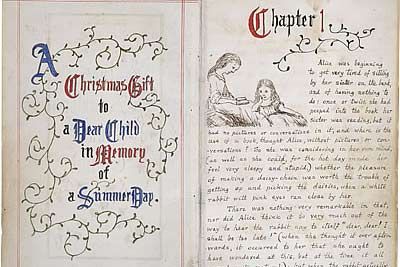 A
Christmas Gift
to
a Dear Child
in Memory
of
a Summer Day.
Chapter 1
Alice was beginning
to get very tired of sitting
by her sister on the bank,
and of having nothing to
do: once or twice she had
peeped into the book her
sister was reading, but it
had no pictures or conversations in it, and where is the
use of a book, thought Alice, without pictures or con-
versations? So she was considering in her own mind,
(as well as she could, for the hot day made her
feel very sleepy and stupid,) whether the pleasure
of making a daisy-chain was worth the trouble of
getting up and picking the daisies, when a white
rabbit with pink eyes ran close by her.
There was nothing very remarkable in that,
nor did Alice think it so very much out of the
way to hear the rabbit say to itself "dear, dear! I
shall be too late!" (when she thought it over after-
wards, it occurred to her that she ought to
have wondered at this, but at the time it all